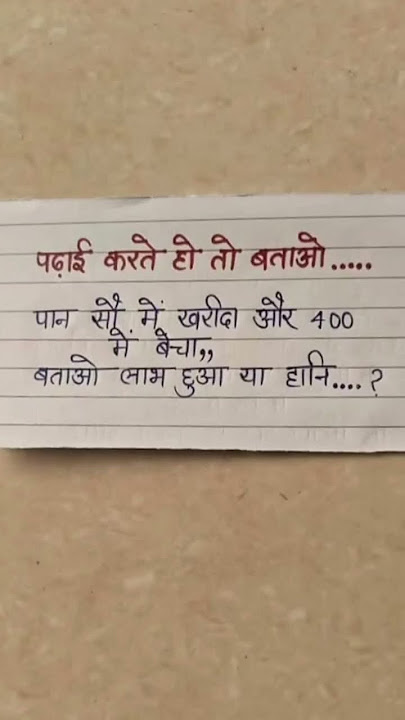 पढ़ाई करते हो तो बताओ.....
पान सौ में खरीदा और 400
में बेचा,,
बताओ लाभ हुआ या हानि....?